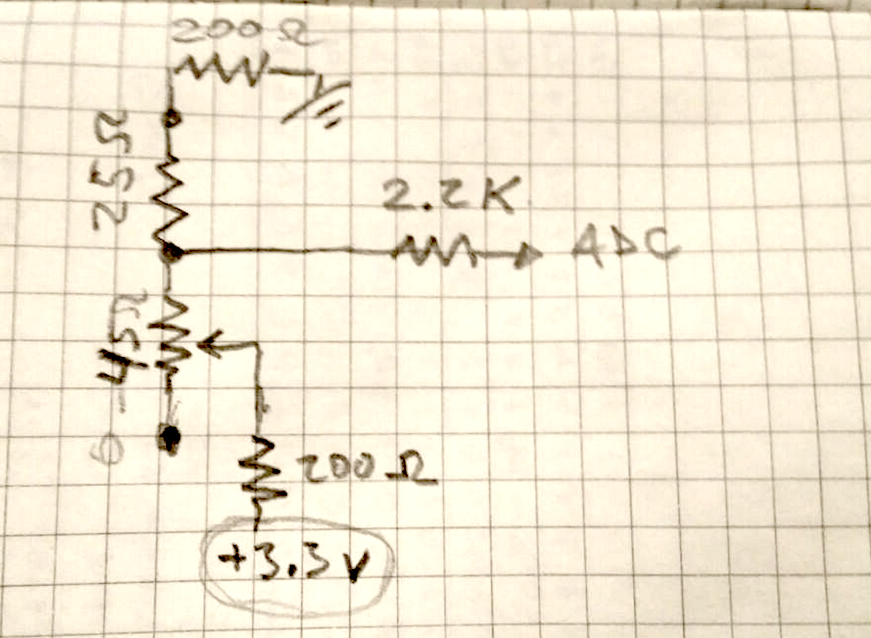 200Ω
25Ω
2.2K
ADC
45Ω
200Ω
+3.3V